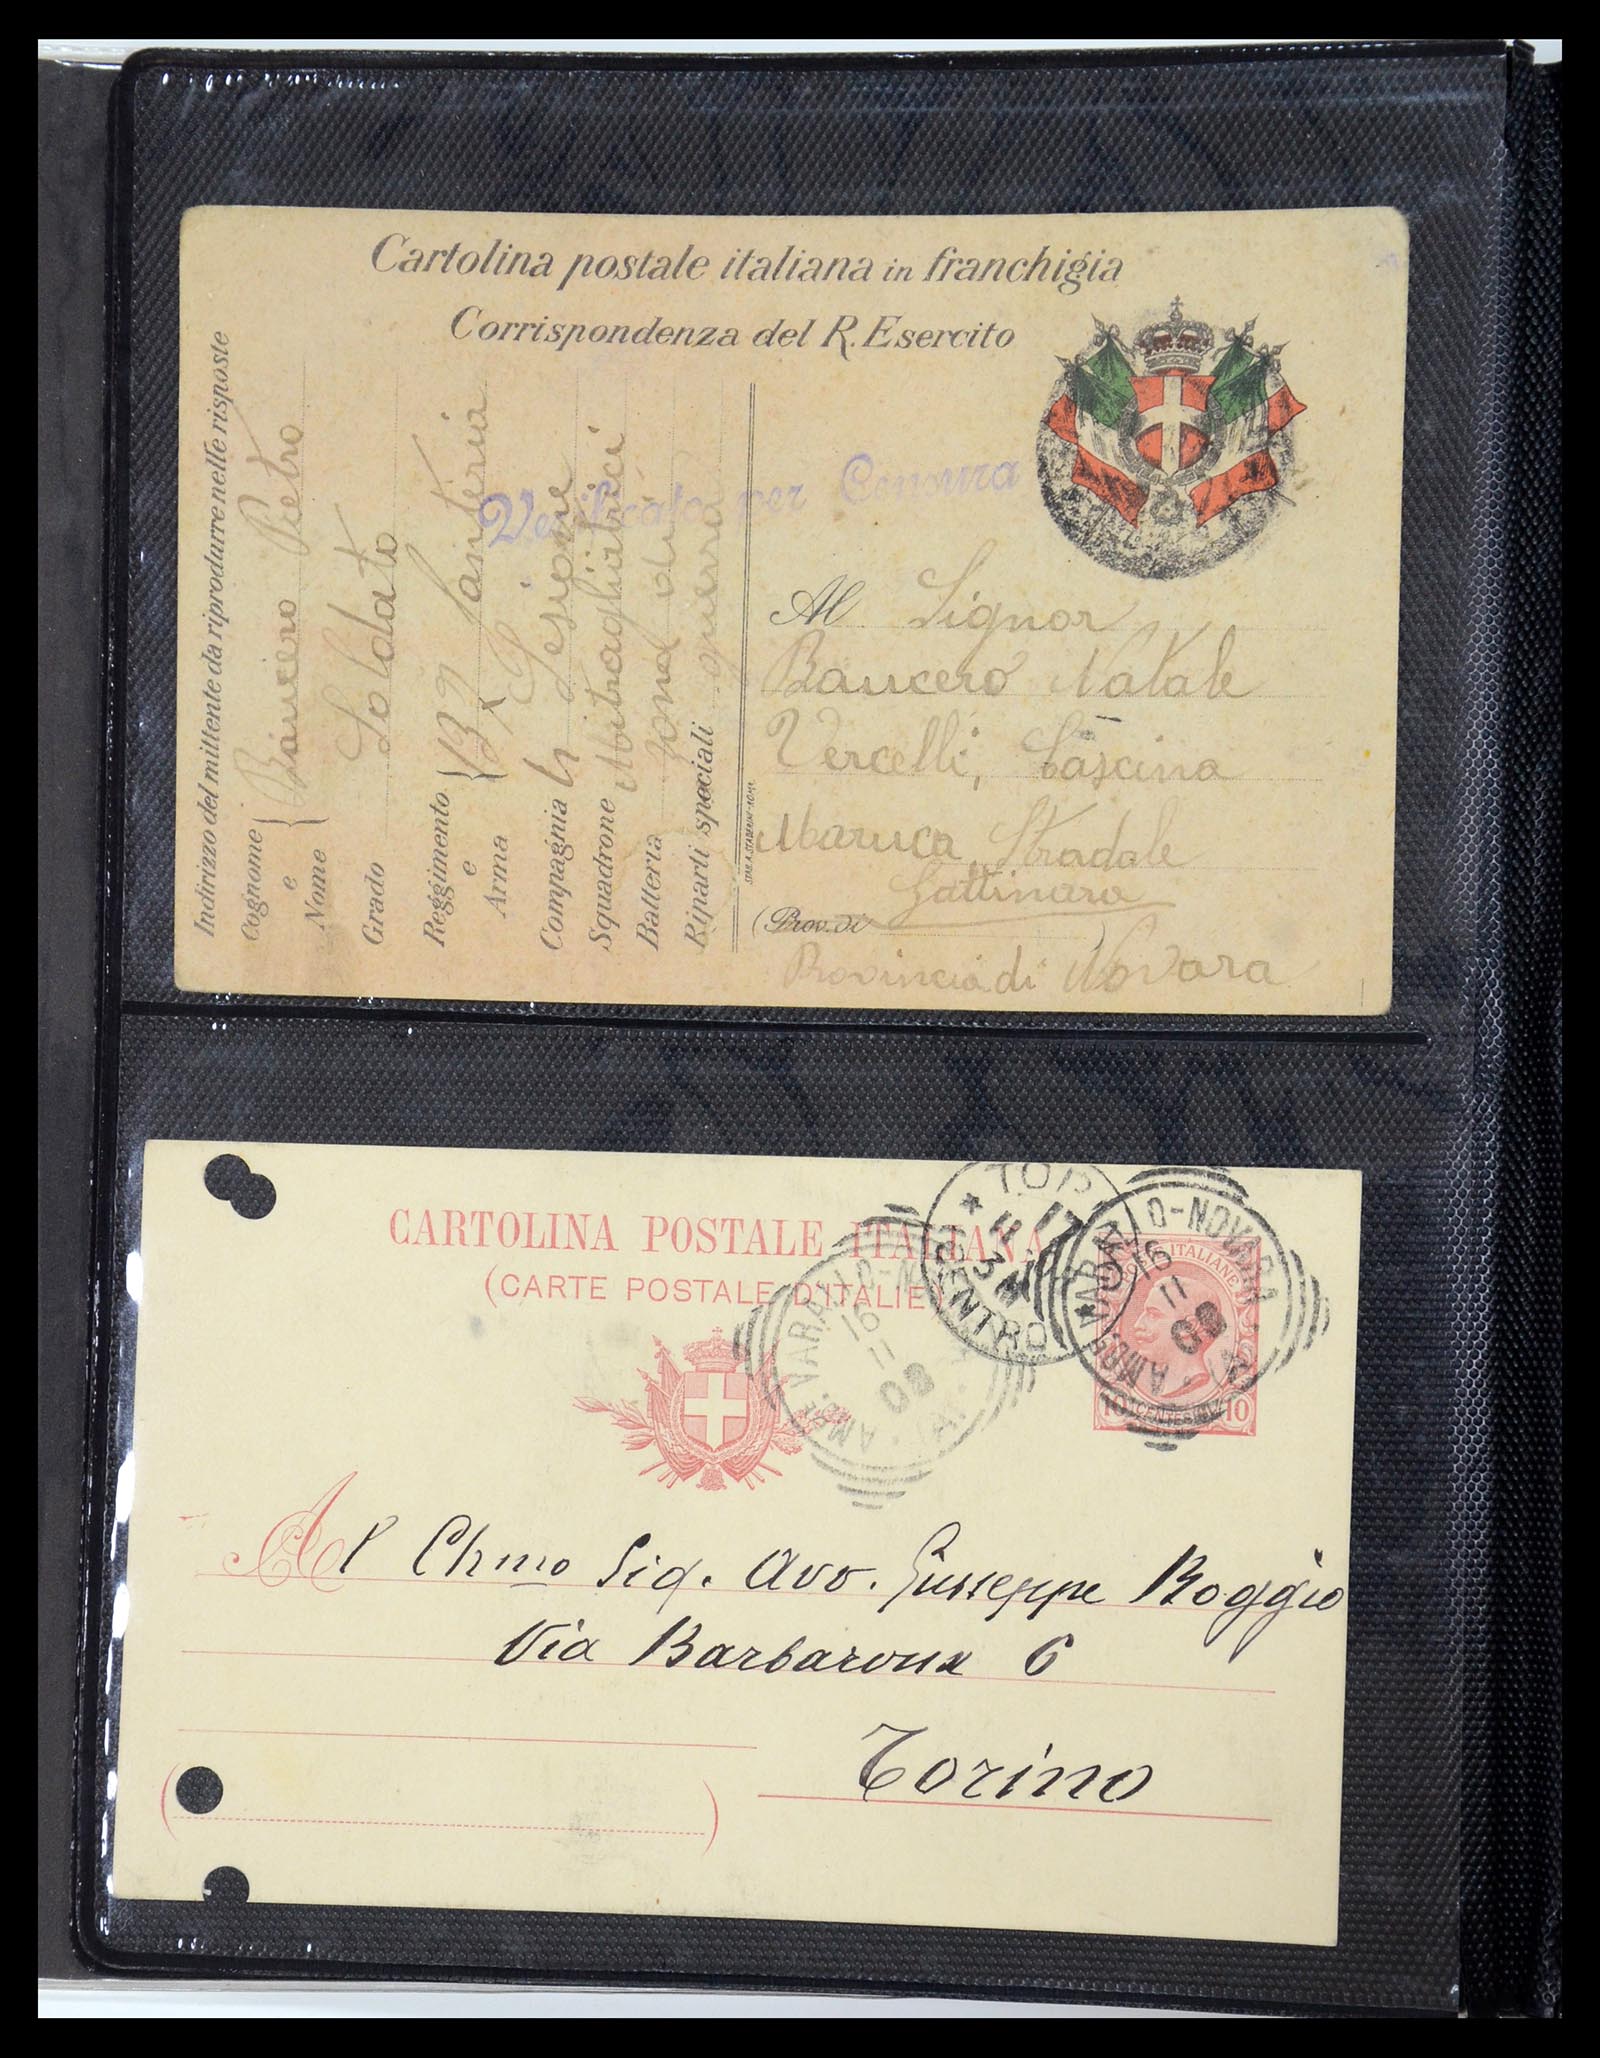 Cartolina postale italiana in franchigia
Corrispondenza del R. Esercito
Indirizzo del mittente da riprodurre nelle risposte
Cognome e Nome { Baucero Pietro
Grado Soldato
Reggimento e Arma { Fanteria
Compagnia
Squadrone Mitragliatrici
Batteria zona di
Riparti speciali guerra
Verificato per Censura
STAB. A. STADERINI-ROMA
Al Signor
Baucero Natale
Vercelli, Cascina
Maruca Stradale
Gattinara
(Prov. di )
Provincia di Novara
CARTOLINA POSTALE ITALIANA
(CARTE POSTALE D'ITALIE)
TOR
17
11
CENTRO
AMB. VARALLO-NOVARA
16
11
08
AMB. VARALLO-N
16
11
08
POSTE ITALIANE
10 CENTESIMI 10
Al Chmo Sig. Avv. Giuseppe Boggio
Via Barbaroux 6
Torino
( )